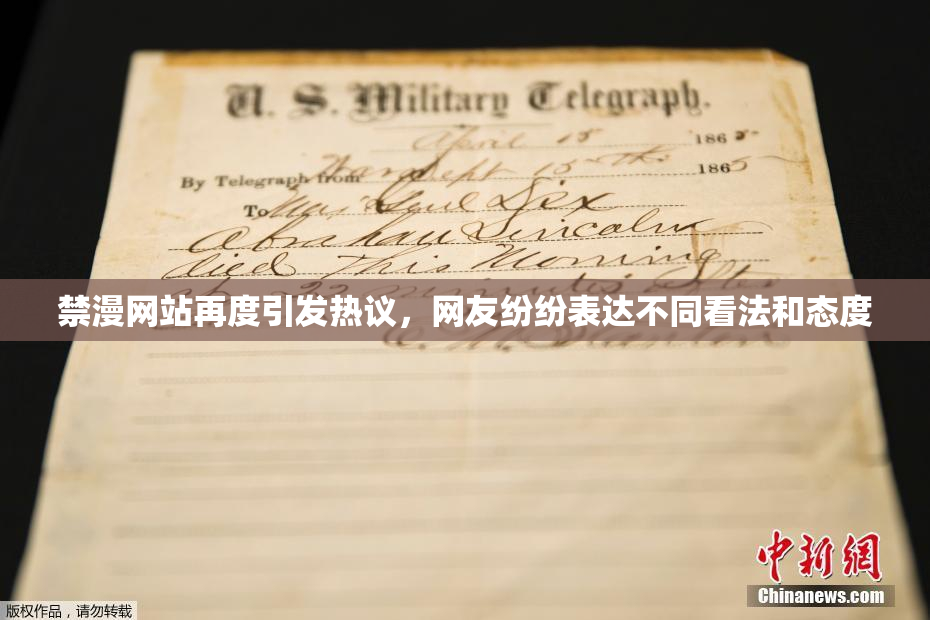 U. S. Military Telegraph.
April 15 1865
By Telegraph from War Dept 15th 1865
To Maj Genl Dix
Abraham Lincoln
died This Morning
at 22 minutes after
禁漫网站再度引发热议，网友纷纷表达不同看法和态度
E. M. Stanton
中新网
Chinanews.com
版权作品，请勿转载